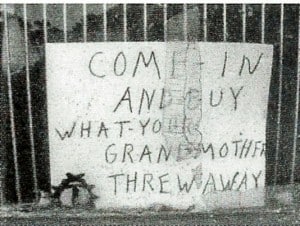 COME-IN
AND-BUY
WHAT-YOUR
GRANDMOTHER
THREW AWAY